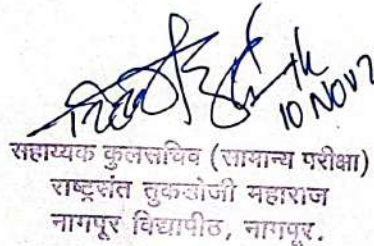 10 NOV
सहाय्यक कुलसचिव (सामान्य परीक्षा)
राष्ट्रसंत तुकडोजी महाराज
नागपूर विद्यापीठ, नागपूर.